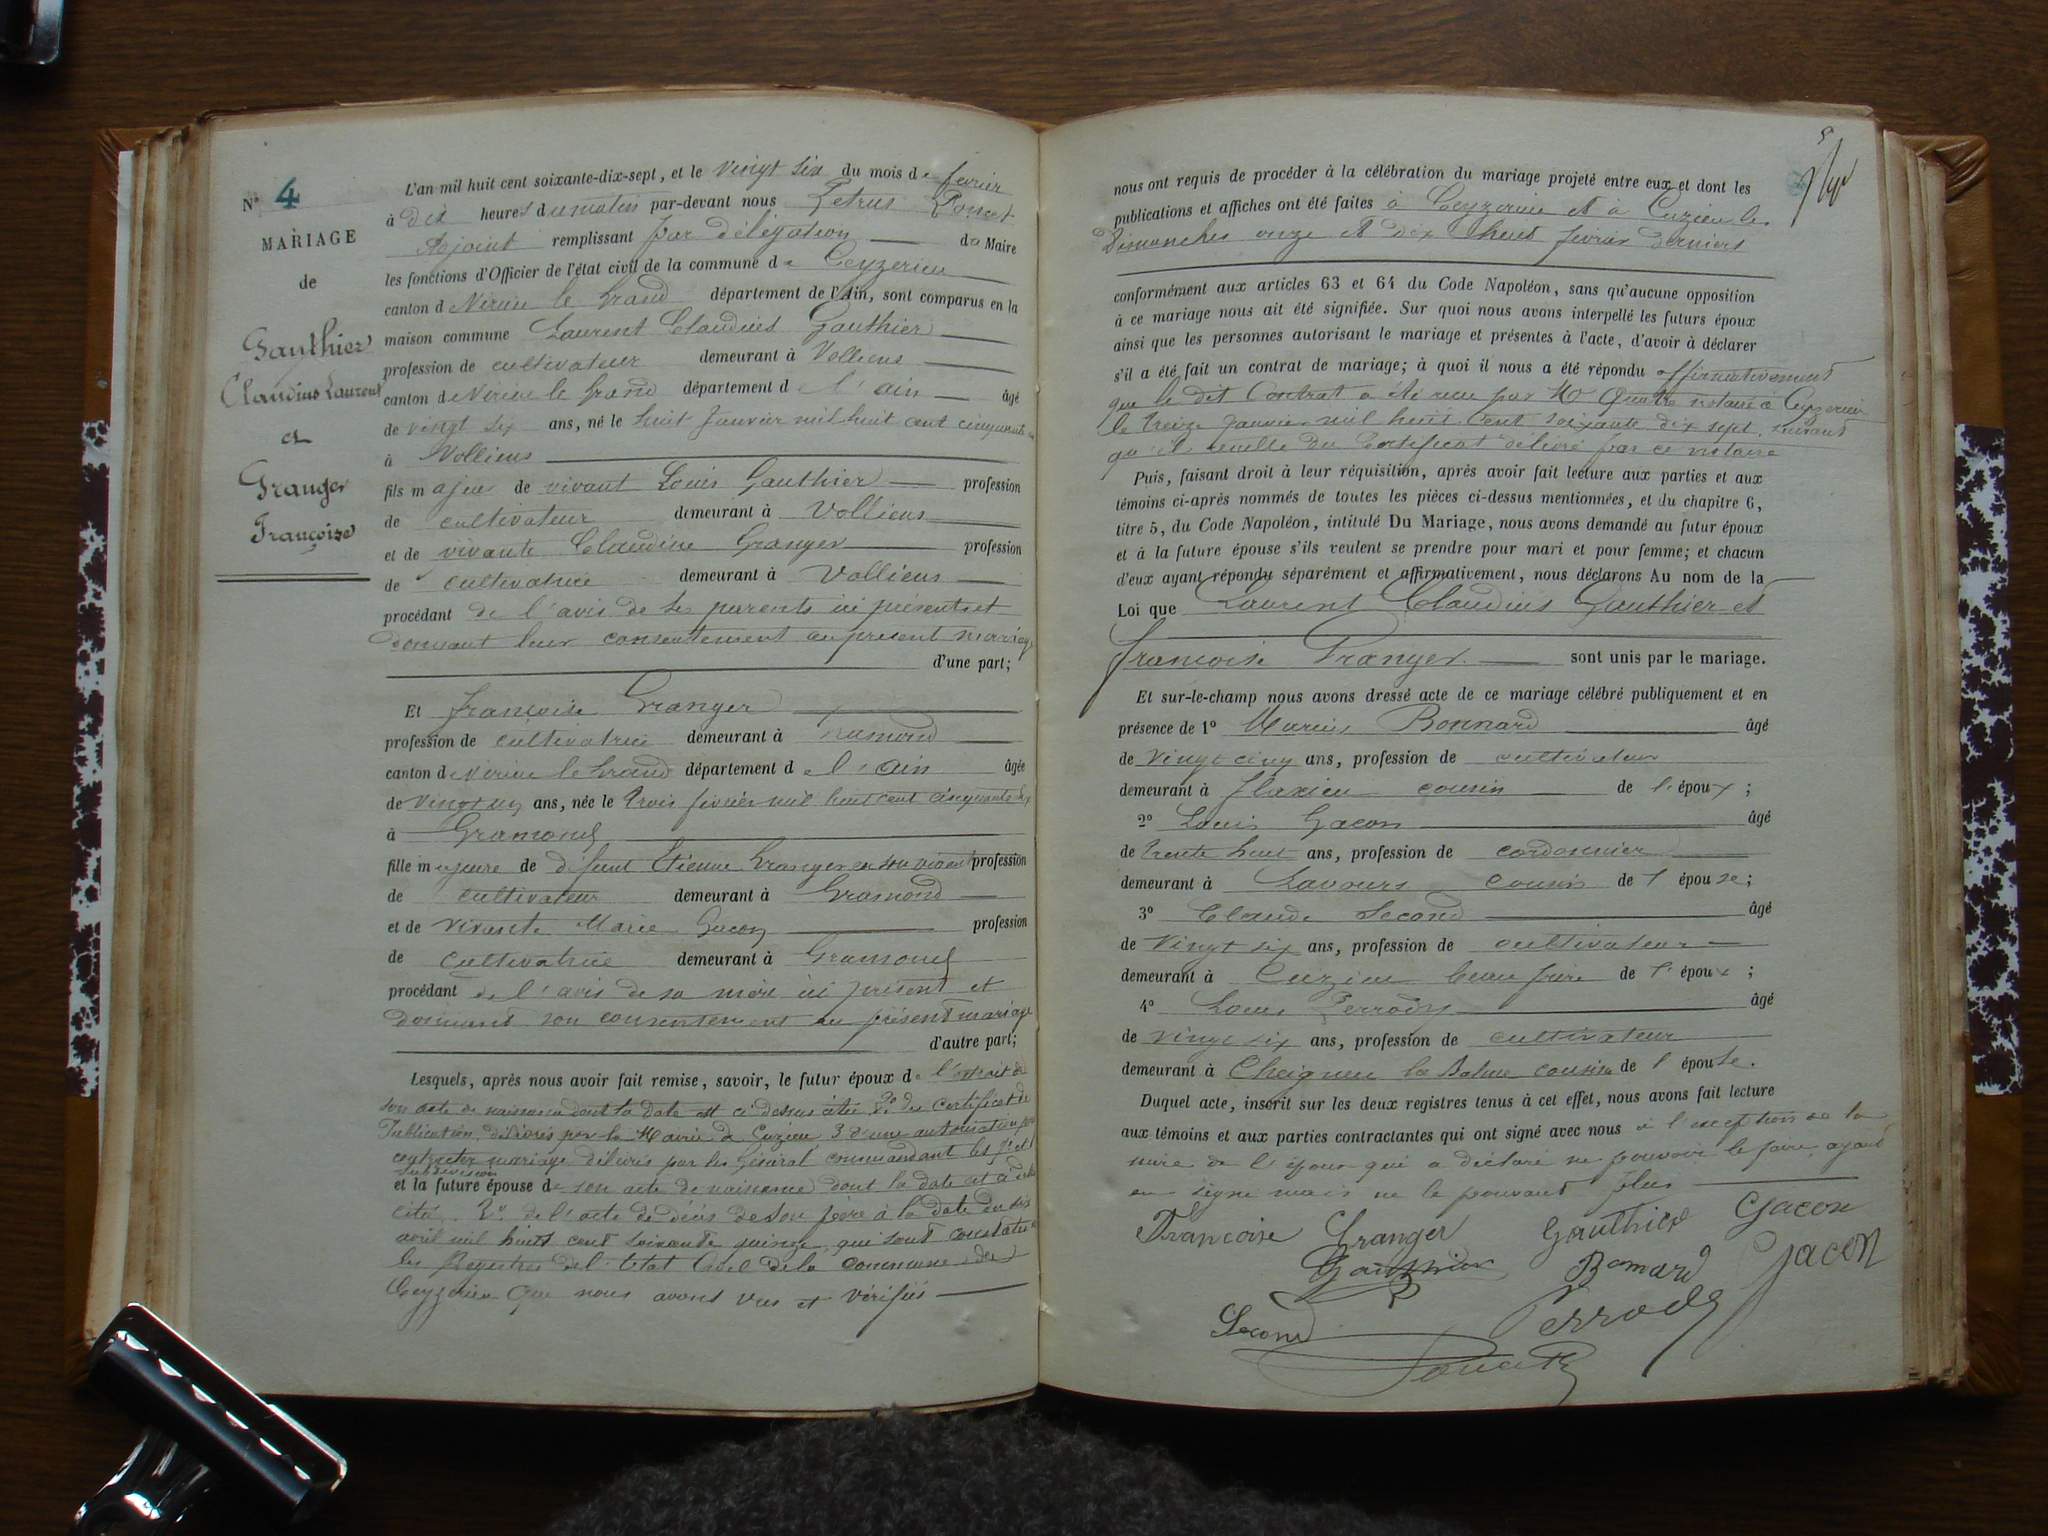 N° 4
MARIAGE
de
Gauthier
Claudius Laurent
et
Granger
Françoise
L'an mil huit cent soixante-dix-sept, et le vingt six du mois de février
à dix heures du matin par-devant nous Petrus Poncet
Adjoint remplissant par délégation du Maire
les fonctions d'Officier de l'état civil de la commune de Ceyzerieu
canton de Virieu le Grand département de l'Ain, sont comparus en la
maison commune Laurent Claudius Gauthier
profession de cultivateur demeurant à Vollien
canton de Virieu le Grand département de l'ain âgé
de vingt six ans, né le huit Janvier mil huit cent cinquante
à Volliens
fils majeur de vivant Louis Gauthier profession
de cultivateur demeurant à Volliens
et de vivante Claudine Granger profession
de cultivatrice demeurant à Volliens
procédant de l'avis de ses parents ici présents et
donnant leur consentement au présent mariage
d'une part;
Et françoise Granger
profession de cultivatrice demeurant à Gramond
canton de Virieu le Grand département de l'ain âgée
de vingt un ans, née le trois février mil huit cent cinquante six
à Gramond
fille majeure de défunt Etienne Granger en son vivant profession
de cultivateur demeurant à Gramond
et de vivante Marie Gacon profession
de cultivatrice demeurant à Gramond
procédant de l'avis de sa mère ici présent et
donnant son consentement au présent mariage
d'autre part;
Lesquels, après nous avoir fait remise, savoir, le futur époux de l'extrait de
son acte de naissance dont la date est ci dessus citée 2° du certificat de
Publication délivrés par la Mairie de Cuzieu 3° d'une autorisation pour
contracter mariage délivrés par le Général commandant les
subdivision
et la future épouse de son acte de naissance dont la date est
citée 2° de l'acte de décès de son père à la date du six
avril mil huit cent soixante quinze, qui sont constatés
les Registres de l'Etat Civil de la commune de
Ceyzerieu que nous avons vus et vérifiés
5
nous ont requis de procéder à la célébration du mariage projeté entre eux et dont les
publications et affiches ont été faites à Ceyzerieu et à Cuzieu les
Dimanches onze et dix huit février derniers
conformément aux articles 63 et 64 du Code Napoléon, sans qu'aucune opposition
à ce mariage nous ait été signifiée. Sur quoi nous avons interpellé les futurs époux
ainsi que les personnes autorisant le mariage et présentes à l'acte, d'avoir à déclarer
s'il a été fait un contrat de mariage; à quoi il nous a été répondu affirmativement
que le dit Contrat a été reçu par Me notaire à Ceyzerieu
le treize janvier mil huit cent soixante dix sept, suivant
qu'il résulte du Certificat délivré par ce notaire
Puis, faisant droit à leur réquisition, après avoir fait lecture aux parties et aux
témoins ci-après nommés de toutes les pièces ci-dessus mentionnées, et du chapitre 6,
titre 5, du Code Napoléon, intitulé Du Mariage, nous avons demandé au futur époux
et à la future épouse s'ils veulent se prendre pour mari et pour femme; et chacun
d'eux ayant répondu séparément et affirmativement, nous déclarons Au nom de la
Loi que Laurent Claudius Gauthier et
françoise Granger sont unis par le mariage.
Et sur-le-champ nous avons dressé acte de ce mariage célébré publiquement et en
présence de 1° Marius Bonnard âgé
de vingt cinq ans, profession de cultivateur
demeurant à Flaxieu cousin de l'époux;
2° Louis Gacon âgé
de trente huit ans, profession de cordonnier
demeurant à Lavours cousin de l'épouse;
3° Claude Second âgé
de vingt six ans, profession de cultivateur
demeurant à Cuzieu beau frère de l'époux;
4° Louis Perrody âgé
de vingt six ans, profession de cultivateur
demeurant à Cheignieu la Balme cousin de l'épouse.
Duquel acte, inscrit sur les deux registres tenus à cet effet, nous avons fait lecture
aux témoins et aux parties contractantes qui ont signé avec nous à l'exception de la
mère de l'époux qui a déclaré ne pouvoir le faire, ayant
signé mais ne le pouvant plus
Francoise Granger Gauthier Gacon
Gauthier Bonnard Gacon
Second Perrody
Poncet